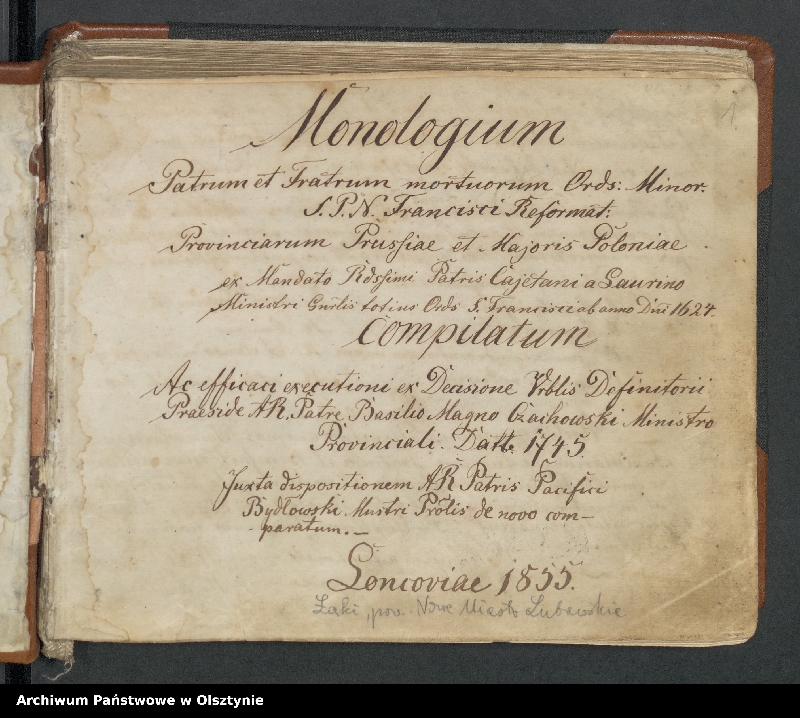 1
Monologium
Patrum et Fratrum mortuorum Ords: Minor.
S. P. N. Francisci Reformat:
Provinciarum Prussiae et Majoris Poloniae
ex Mandato Rdssimi Patris Cajetani a Laurino
Ministri Gnrlis totius Ords S. Francisci ab anno Dni 1624.
Compilatum
Ac efficaci executioni ex Decisione Vrblis Definitorii
Praeside AR. Patre Basilio Magno Czachowski Ministro
Provinciali. Datt. 1745.
Juxta dispositionem AR Patris Pacifici
Bydłowski Mnstri Prōlis de novo com–
paratum.–
Loncoviae 1855.
Łąki, pow. Nowe Miasto Lubawskie
Archiwum Państwowe w Olsztynie